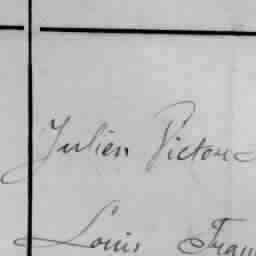 Julien Victor
Louis Fran